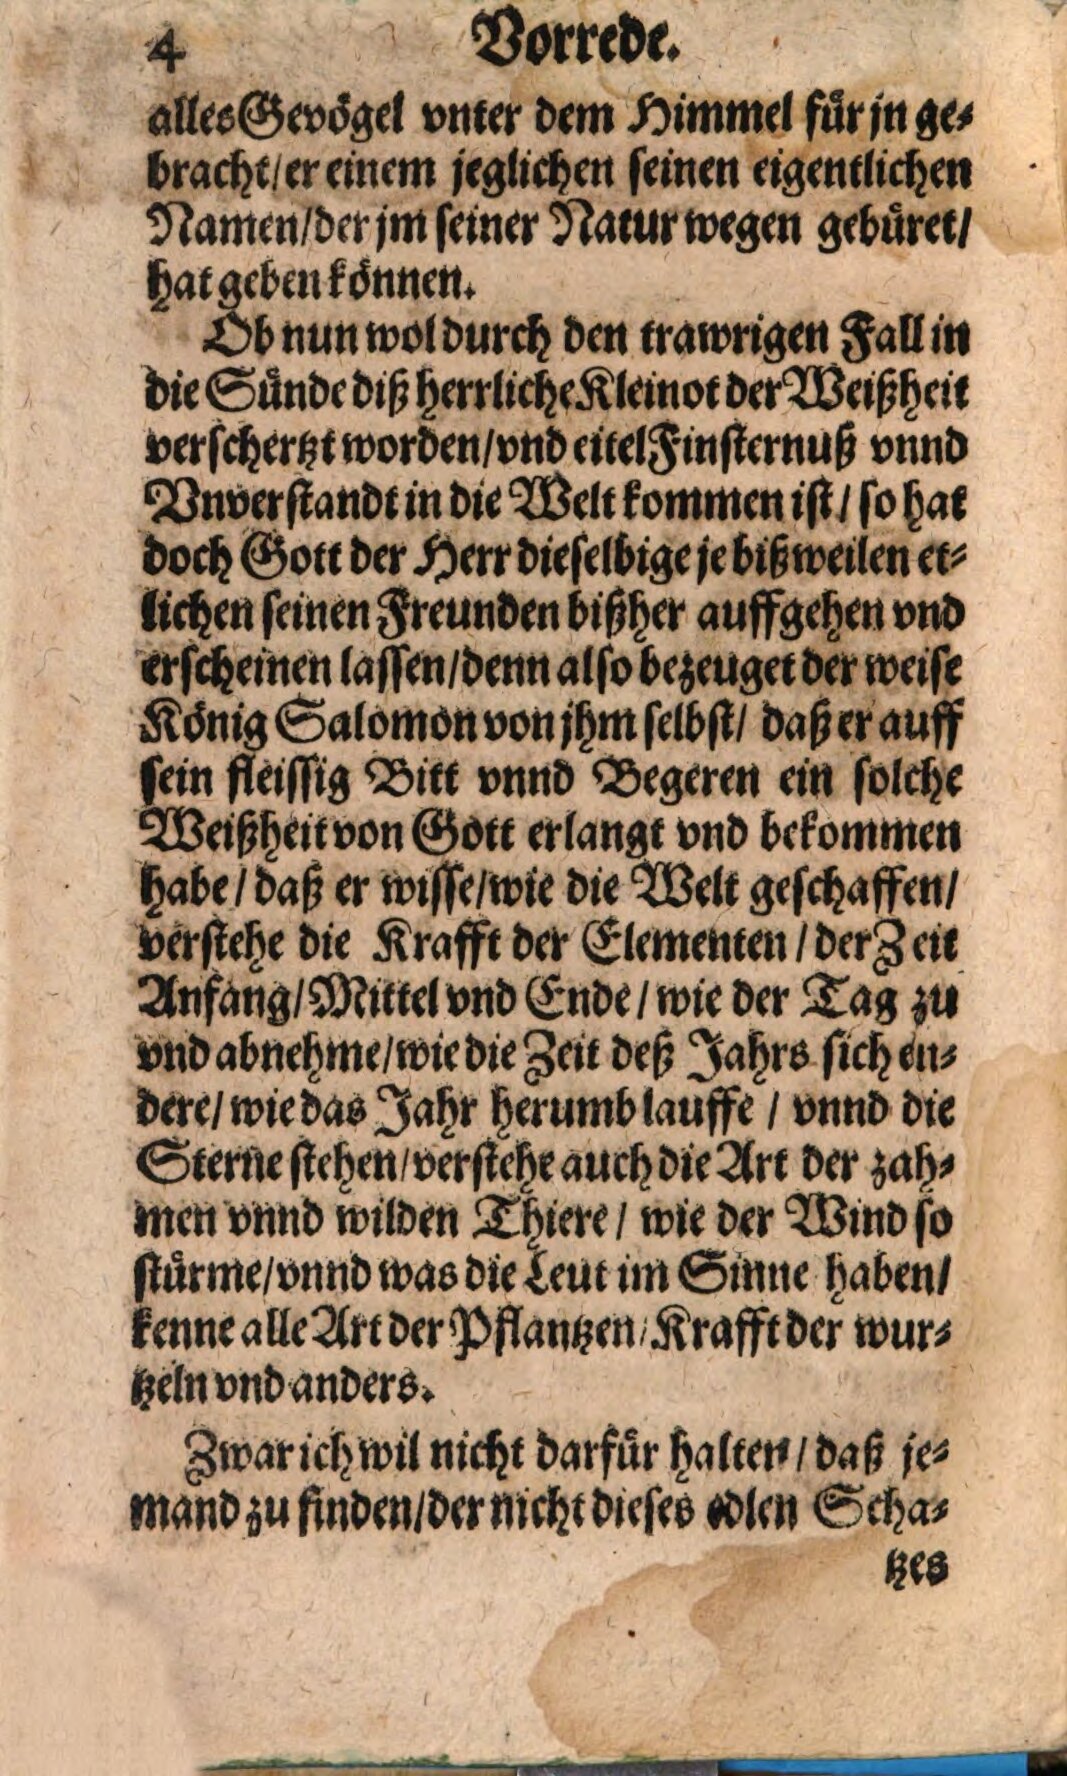 4 Vorrede.
alles Gevögel vnter dem Himmel für jn ge-
bracht/ er einem jeglichen seinen eigentlichen
Namen/ der jm seiner Natur wegen gebüret/
hat geben können.
Ob nun wol durch den trawrigen Fall in
die Sünde diß herrliche Kleinot der Weißheit
verschertzt worden/ vnd eitel Finsternuß vnnd
Vnverstandt in die Welt kommen ist/ so hat
doch Gott der Herr dieselbige je bißweilen et-
lichen seinen Freunden bißher auffgehen vnd
erscheinen lassen/ denn also bezeuget der weise
König Salomon von jhm selbst/ daß er auff
sein fleissig Bitt vnnd Begeren ein solche
Weißheit von Gott erlangt vnd bekommen
habe/ daß er wisse/ wie die Welt geschaffen/
verstehe die Krafft der Elementen/ der Zeit
Anfang/ Mittel vnd Ende/ wie der Tag zu
vnd abnehme/ wie die Zeit deß Jahrs sich en-
dere/ wie das Jahr herumb lauffe/ vnnd die
Sterne stehen/ verstehe auch die Art der zah-
men vnnd wilden Thiere/ wie der Wind so
stürme/ vnnd was die Leut im Sinne haben/
kenne alle Art der Pflantzen/ Krafft der wur-
tzeln vnd anders.
Zwar ich wil nicht darfür halten/ daß je-
mand zu finden/ der nicht dieses edlen Scha-
tzes